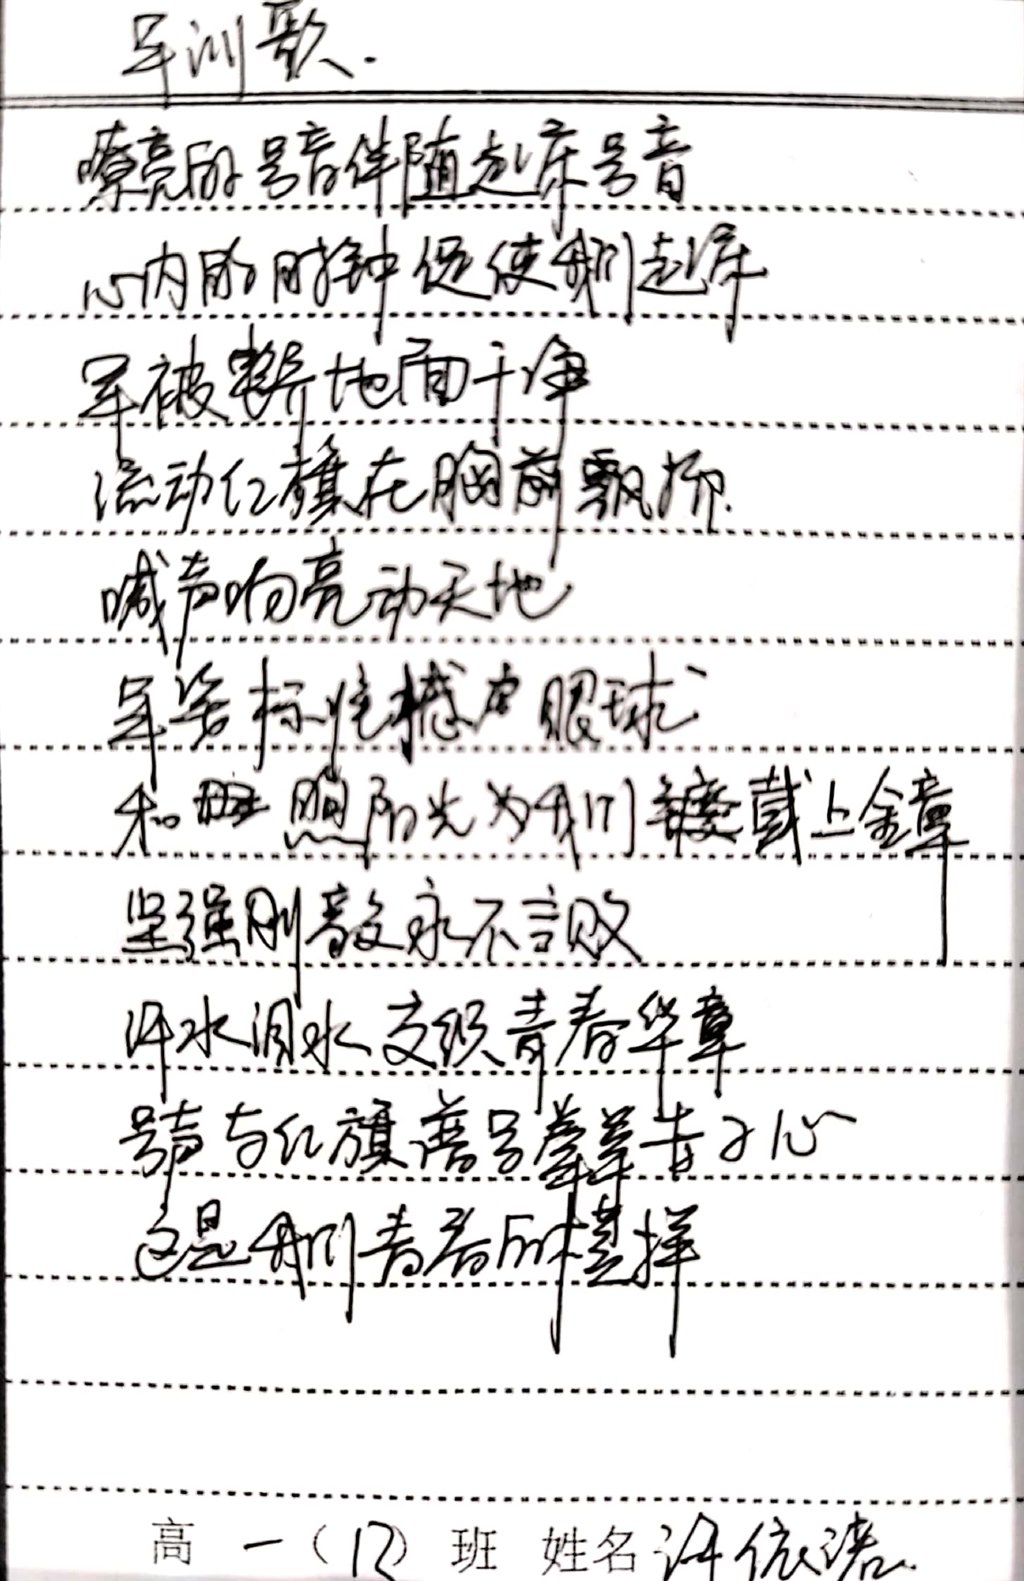 军训歌.
嘹亮的号音伴随起床号音
心内的时钟促使我们起床
军被整齐地面干净
流动红旗在胸前飘扬.
喊声响亮动天地
军姿标准撼人眼球
和 照阳光为我们 戴上金章
坚强刚毅永不言败
汗水泪水交织青春华章
号声与红旗 号
这是我们青春的模样
高一(12)班 姓名 许依诺.